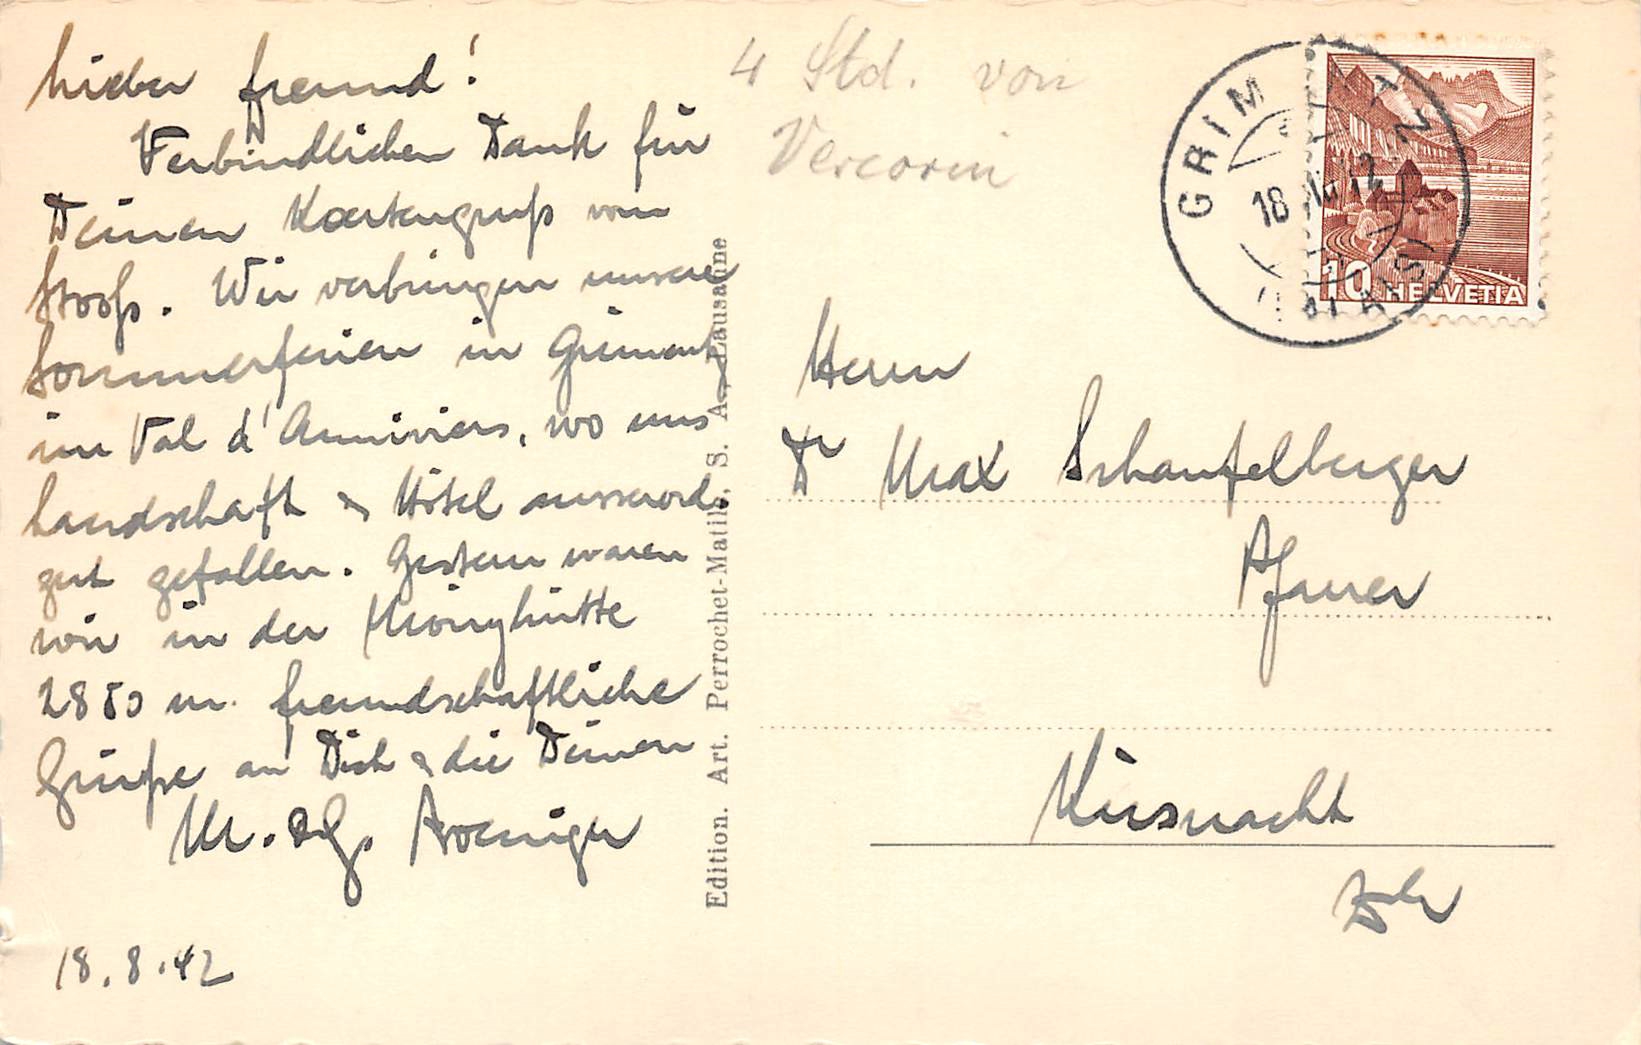 Lieber Freund!
Verbindlichen Dank für
Deinen Kartengruß vom
Stooß. Wir verbringen unsere
Sommerferien in Grimentz
im Val d'Anniviers, wo uns
Landschaft & Hôtel ausserord.
gut gefallen. Gestern waren
wir in der Moiryhütte
2850 m. Freundschaftliche
Grüße an Dich & die Deinen
18.8.42
4 Std. von
Vercorin
GRIMENTZ
18
(VALAIS)
10 HELVETIA
Edition. Art. Perrochet-Matile, S. A., Lausanne
Herrn
Dr Max Schaufelberger
Pfarrer
Küsnacht
Zch